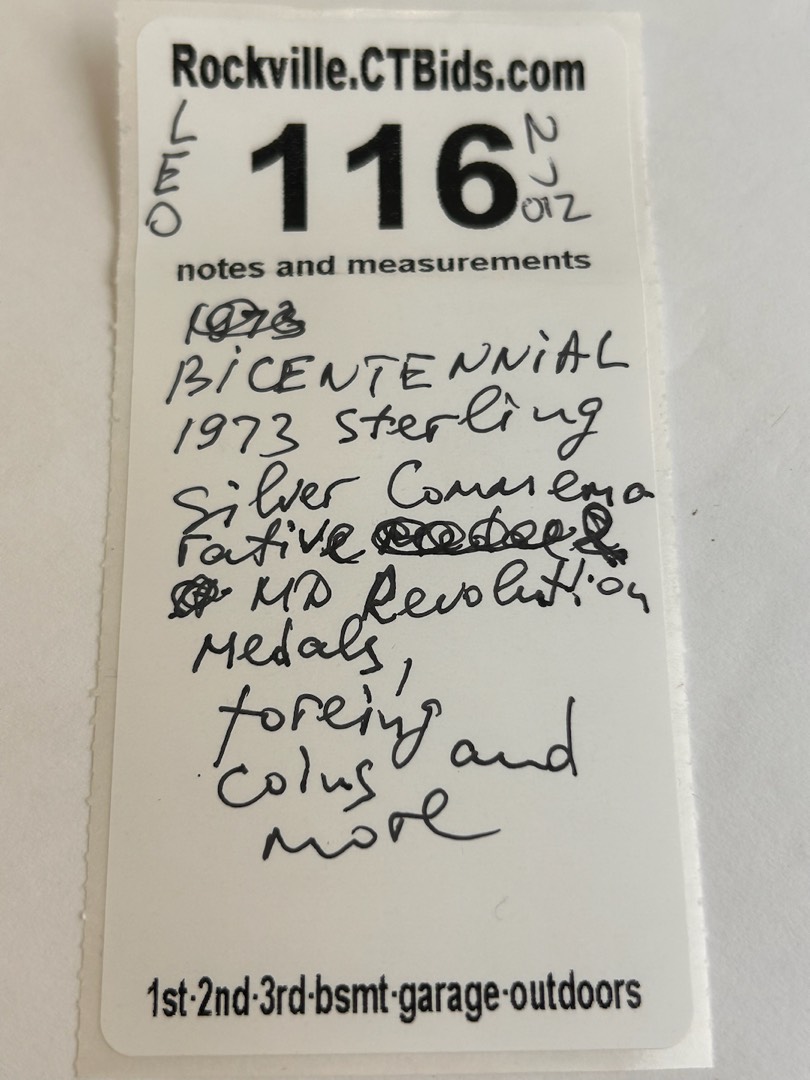 Rockville.CTBids.com
LEO
116
notes and measurements
1973
BiCENTENNiAL
1973 Sterling
Silver Commemo
rative
MD Revolution
Medals,
foreing
coins and
more
1st·2nd·3rd·bsmt·garage·outdoors